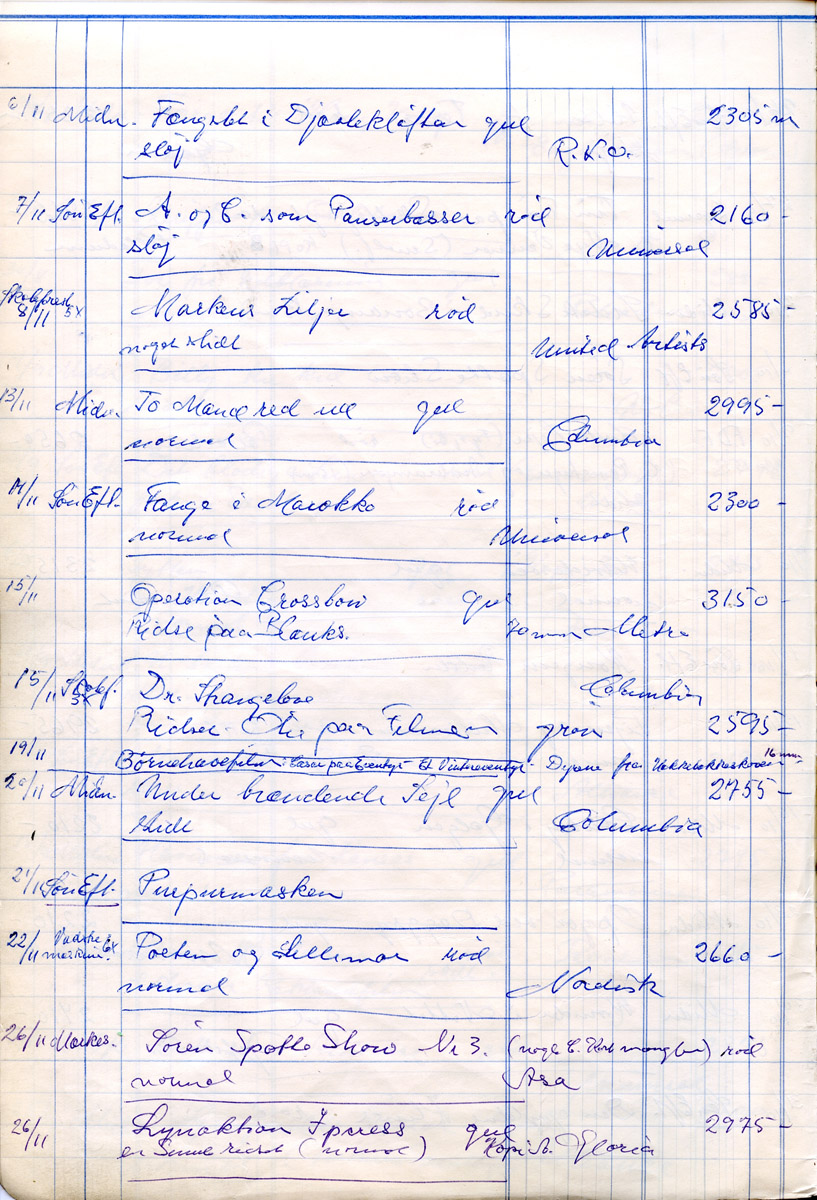 6/11 Midn. Fangstet i Djævlekløften gul 2305 m
sløj R.K.O.
7/11 Søn Eft. A. og C. som Panserbasser rød 2160 -
sløj Universal
8/11 5x Markens Liljer rød 2585 -
noget slidt United Artists
13/11 Midn. To Mænd red gul 2995 -
normal Columbia
14/11 Søn Eft. Fange i Marokko rød 2300 -
normal Universal
15/11 Operation Crossbow gul 3150 -
Ridse paa Blanks. 70 mm Metro
15/11 5x Dr. Strangelove Columbia
Ridser. Olie paa Filmen grøn 2595 -
19/11 Børnehavefilm: Lasse paa Eventyr Et Vintereventyr - Dyrene fra Hakkebakkeskoven 16 mm
20/11 Midn. Under brændende Sejl gul 2755 -
slidt Columbia
21/11 Søn Eft. Purpurmasken
22/11 6x Poeten og Lillemor rød 2660 -
normal Nordisk
26/11 Søren Spætte Show Nr 3. rød
normal Asa
26/11 Lynaktion Ipcress gul 2975 -
en Smule ridset (normal) Gloria